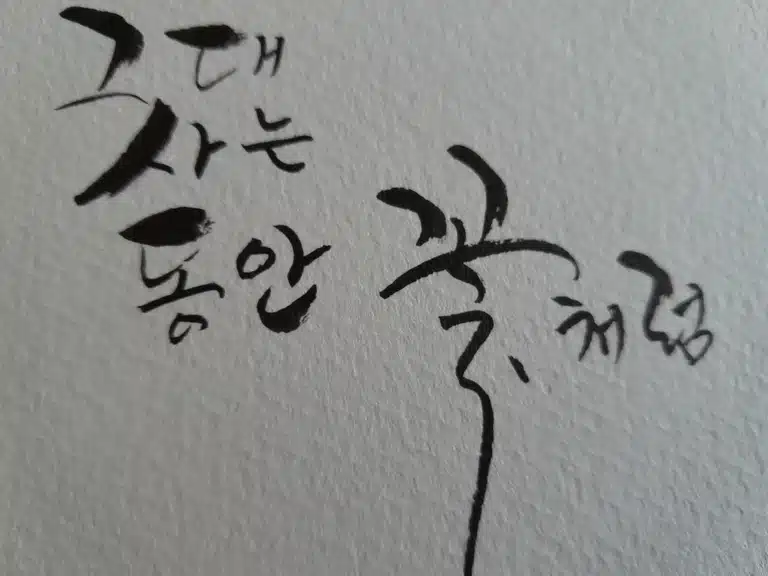 그대
사는
동안
꽃처럼